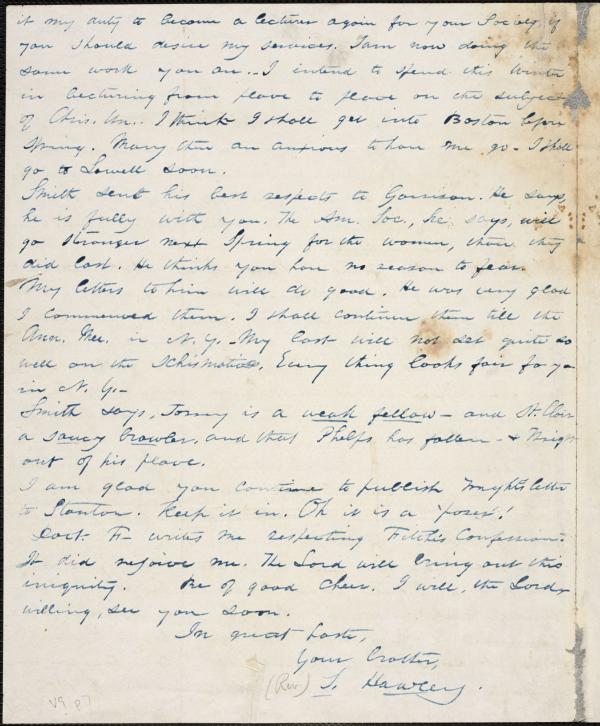 it my duty to become a lecturer again for your Society, if
you should desire my services. I am now doing the
same work you are. I intend to spend this winter
in lecturing from place to place on the subject
of Chris. Un.. I think I shall get into Boston before
Spring. Many there are anxious to have me go. I shall
go to Lowell soon.
Smith sent his best respects to Garrison. He says,
he is fully with you. The Am. Soc., he says, will
go stronger next Spring for the women, than they
did last. He thinks you have no reason to fear.
My letters to him will do good. He was very glad
I commenced them. I shall continue them till the
Ann. Mee. in N. Y. My last will not set quite so
well on the Schismatics, Every thing looks fair for you
in N. Y.-
Smith says, Torrey is a weak fellow - and St. Clair
a saucy growler, and that Phelps has fallen - & Wright
out of his place.
I am glad you continue to publish Wright's letter
to Stanton. Keep it in. Oh it is a 'poser'!
Doct. F- writes me respecting Fitch's Confession.
It did rejoice me. The Lord will bring out this
iniquity. Be of good cheer. I will, the Lord
willing, see you soon.
In great haste,
Your brother,
(Rev) S. Hawley.
V9 p7